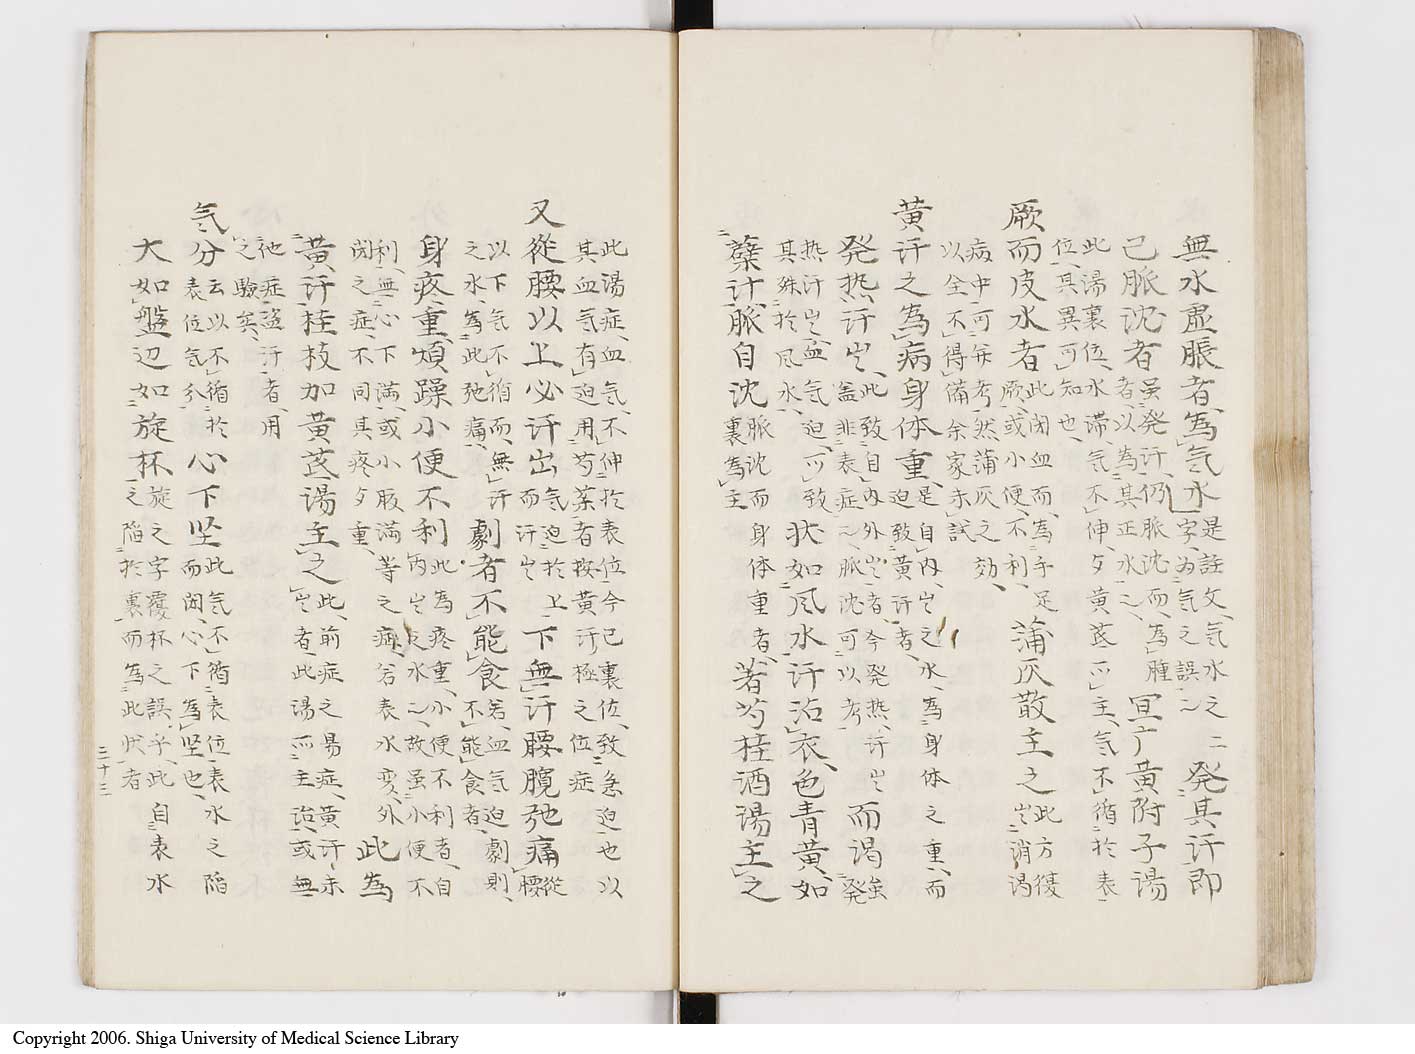 無水虚脹者為气水是註文气水之
字為气之誤発其汗即
已脈沈者虽発汗仍脈沈而為腫
者以為其正水冥广黄附子湯
此湯裏位水滞气不伸黄芪主气不循於表
位其異可知也
厥而皮水者此闭血而為手足
厥或小便不利蒲灰散主之此方復
消渴
病中可并考然蒲灰之効
以全不得備余家未試
黄汗之為病身体重是自内之水為身体之重而
迫致黄汗者
発热汗出此致自内外出者今発热汗出
盖非表症脈沈可以考而渇虽発
热汗出血气迫致
其殊於风水状如风水汗沾衣色青黄如
蘖汁脈自沈脈沈而身体重者
裏為主著芍桂酒湯主之
此湯症血气不伸於表位今已裏位致急迫也以
其血气有迫用芍薬者按黄汗極之位症
又從腰以上必汗出气迫於上
而汗出下無汗腰髖弛痛從
腰
以下气不循而無汗若血气迫劇則
之水為此弛痛劇者不能食不能食者
身疼重煩躁小便不利此為疼重小便不利者自
内之水故虽小便不
利無心下満或小腹満等之痛表水変外
闭之症不同其疼重此為
黄汗桂枝加黄芪湯主之此前症之易症黄汗未
出者此湯主治或無
他症盗汗者用
之驗矣
气分云以不循於
表位气分心下坚此气不循表位表水之陷
而闭心下為坚也
大如盤辺如旋杯旋之字覆杯之誤乎此自表水
之陷於裏而為此状者
三十三
Copyright 2006. Shiga University of Medical Science Library